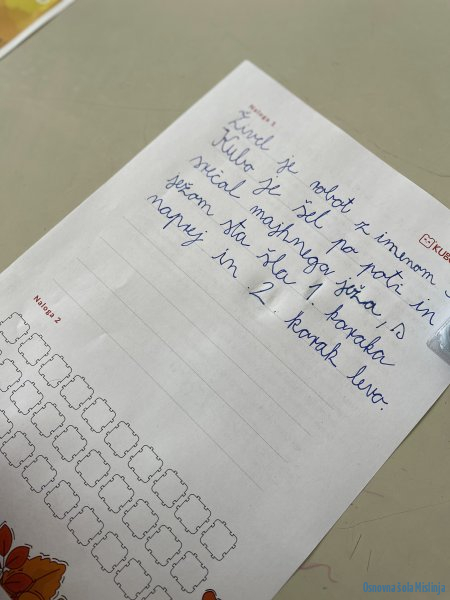 Naloga 1
Živel je robot z imenom
Kubo je šel po poti in
srečal majhnega ježa, s
ježom sta šla 1 koraka
naprej in 2. korak levo.
KUBO
Naloga 2
Osnovna šola Mislinja